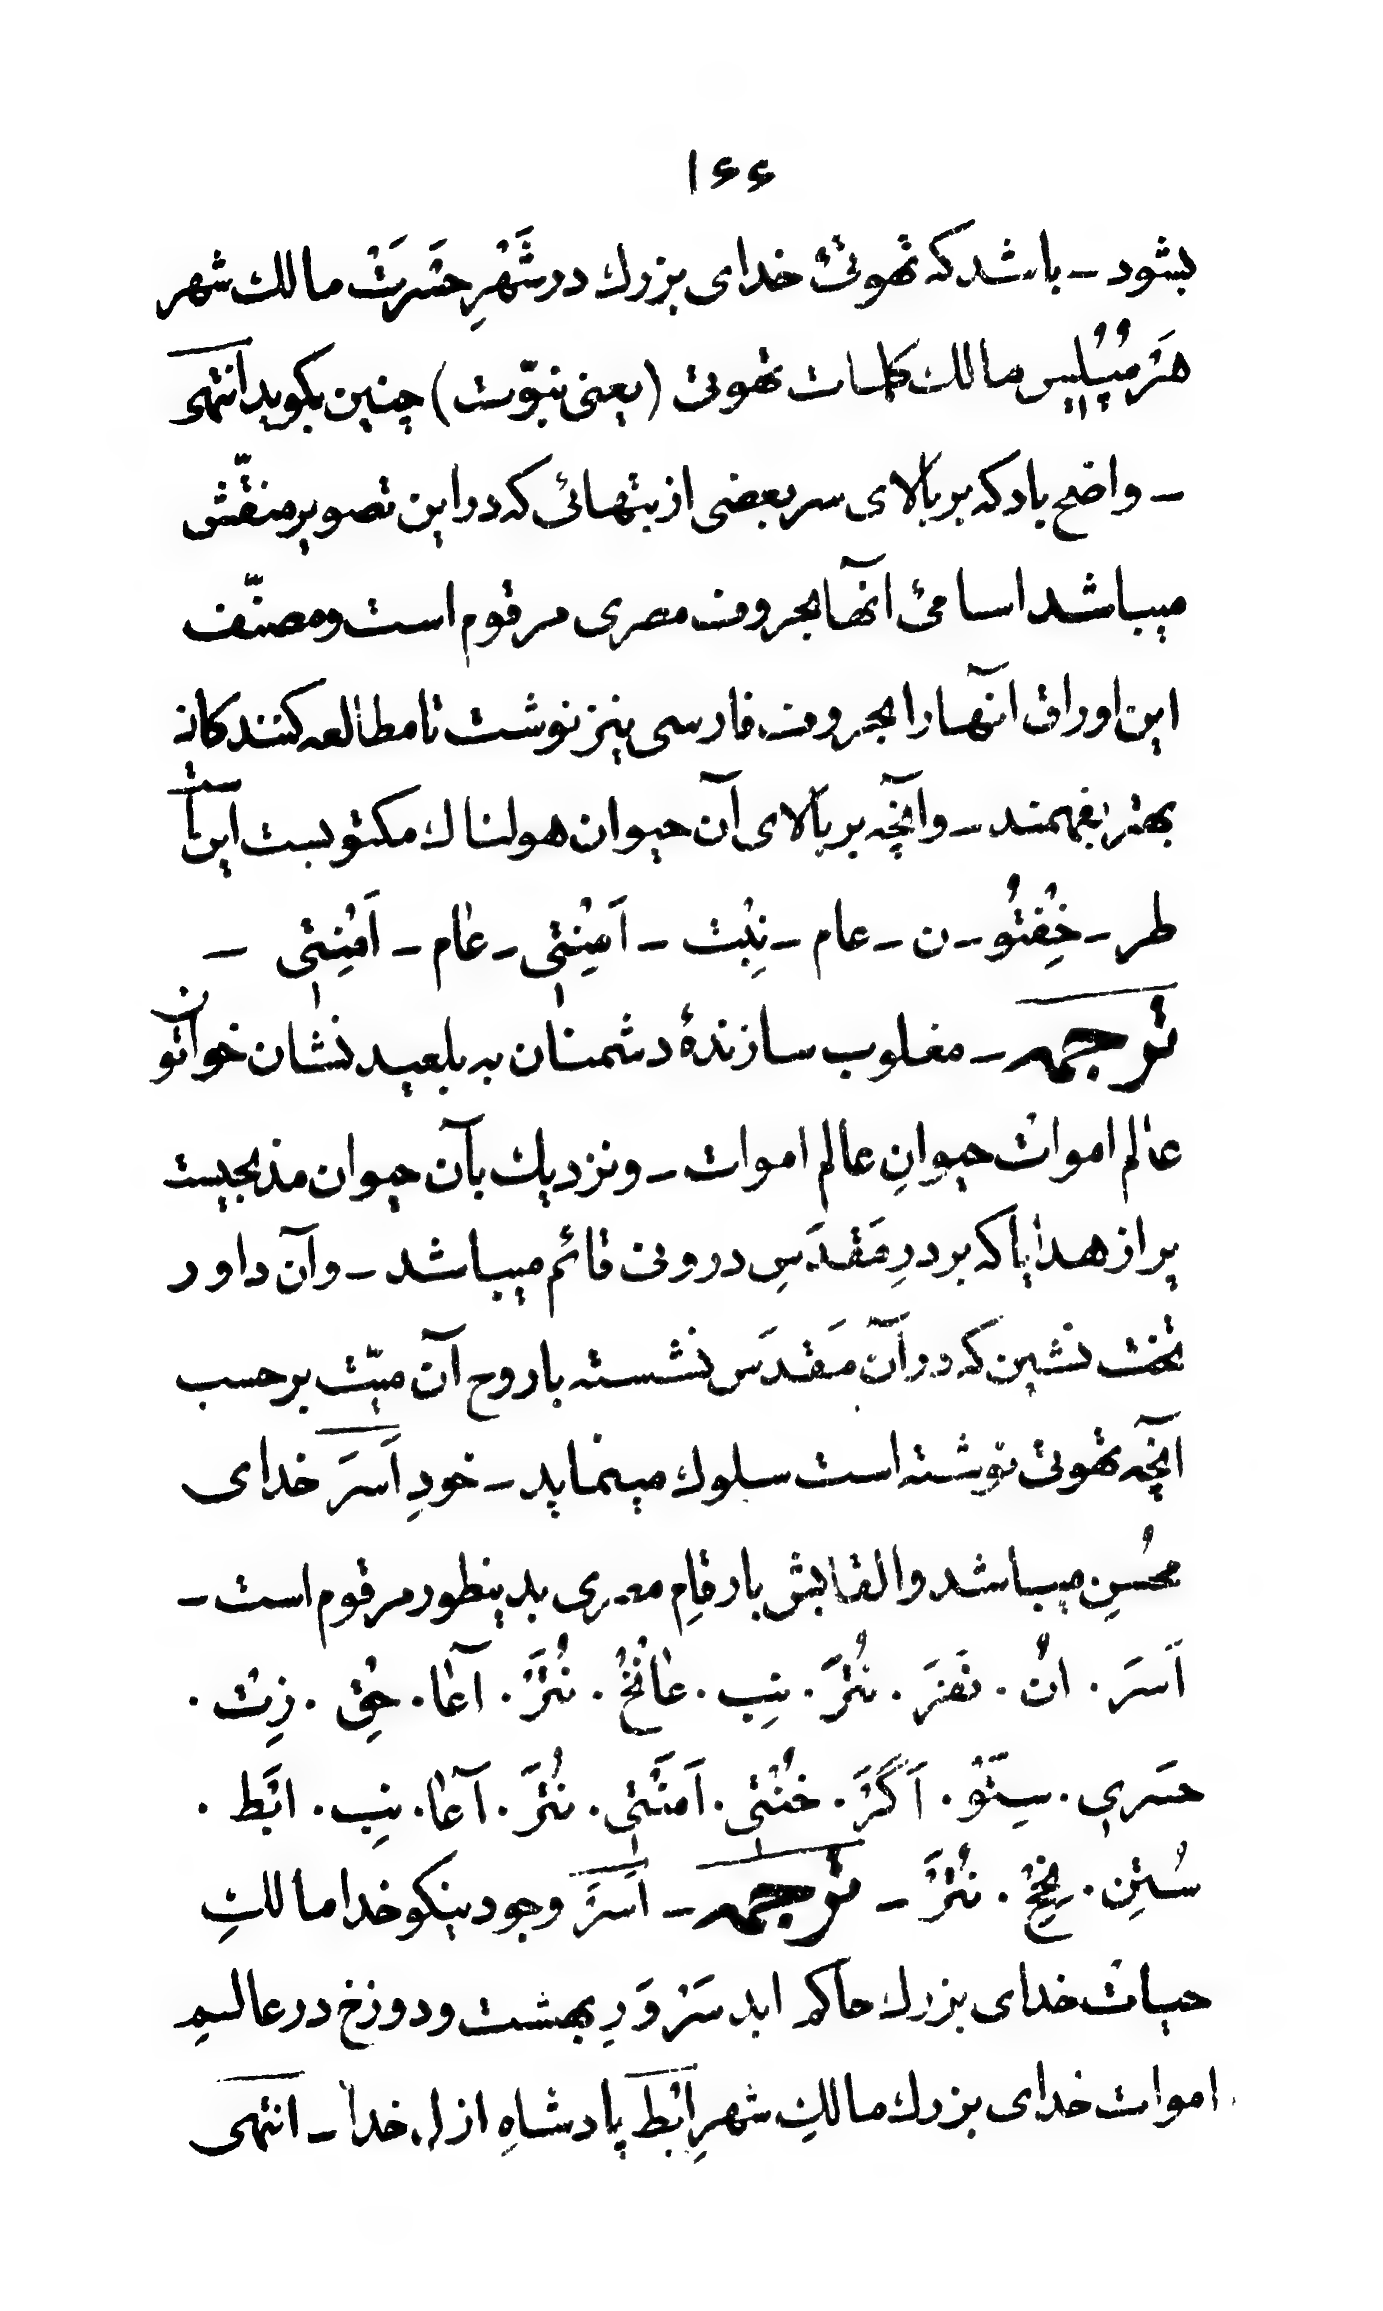 ۱۶۶
بشود – باشد که تهوتئ خدای بزرك در شَهْرِ حَسْرَتْ مالك شهر
هَرْمُپُلِیس مالك كلمات تهوتی (یعنی نبوّت) چنین بگوید انتهی
– واضح باد که بر بالای سر بعضی از بتهائی که در این تصویر منقّش
میباشد اسامئ آنها بحروف مصری مرقوم است و مصنّف
این اوراق آنها را بحروف فارسی نیز نوشت تا مطالعه کنندكان
بهتر بفهمند – و آنچه بر بالای آن حیوان هولناك مکتوبست این است
طر – خِفْتُو – ن – عام – نِبْت – اَمِنْتِی – عام – اَمِنْتِی –
ترجمه – مغلوب سازندهٔ دشمنان به بلعید نشان خواتون
عالم اموات حیوانِ عالم اموات – و نزدیك بآن حیوان مذبحیست
پر از هدایا که بر درِ مَقدَسِ درونی قائم میباشد – و آن داور
تخت نشین که در آن مَقدَس نشسته با روح آن میّت بر حسب
آنچه تهوتی نوشته است سلوك مینماید – خودِ اَسَرَ خدای
محُسِن میباشد و القابش بارقامِ مصری بدینطور مرقوم است –
اَسَرَ ۰ انْ ۰ نَفَرَ ۰ نُتْرَ ۰ نِب ۰ عانْخْ ۰ نُتْرَ ۰ آعا ۰ حِقْ ۰ زِتْ ۰
حَسَری ۰ سِتّو ۰ اَگَرْ ۰ خنُتْی ۰ اَمَنْتِی ۰ نُتْرَ ۰ آعا ۰ نِب ۰ ابَط ۰
سُتِن ۰ حِخْ ۰ نُتْرَ – ترجمه – اَسَرَ وجود نیکو خدا مالكِ
حیات خدای بزرك حاکم ابد سَرْوَرِ بهشت و دوزخ در عالمِ
اموات خدای بزرك مالكِ شهرِ ابَط پادشاهِ ازل خدا – انتهی